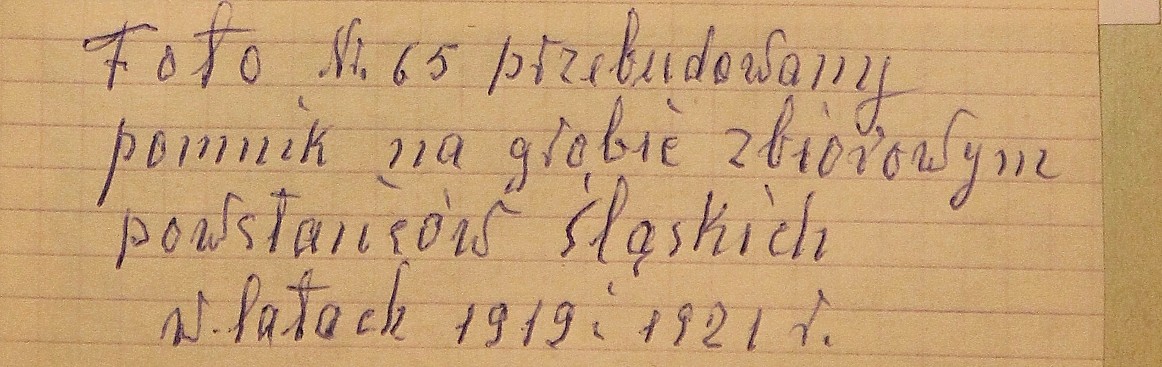 Foto Nr. 65 przebudowany
pomnik na grobie zbiorowym
powstańców śląskich
w latach 1919 i 1921 r.